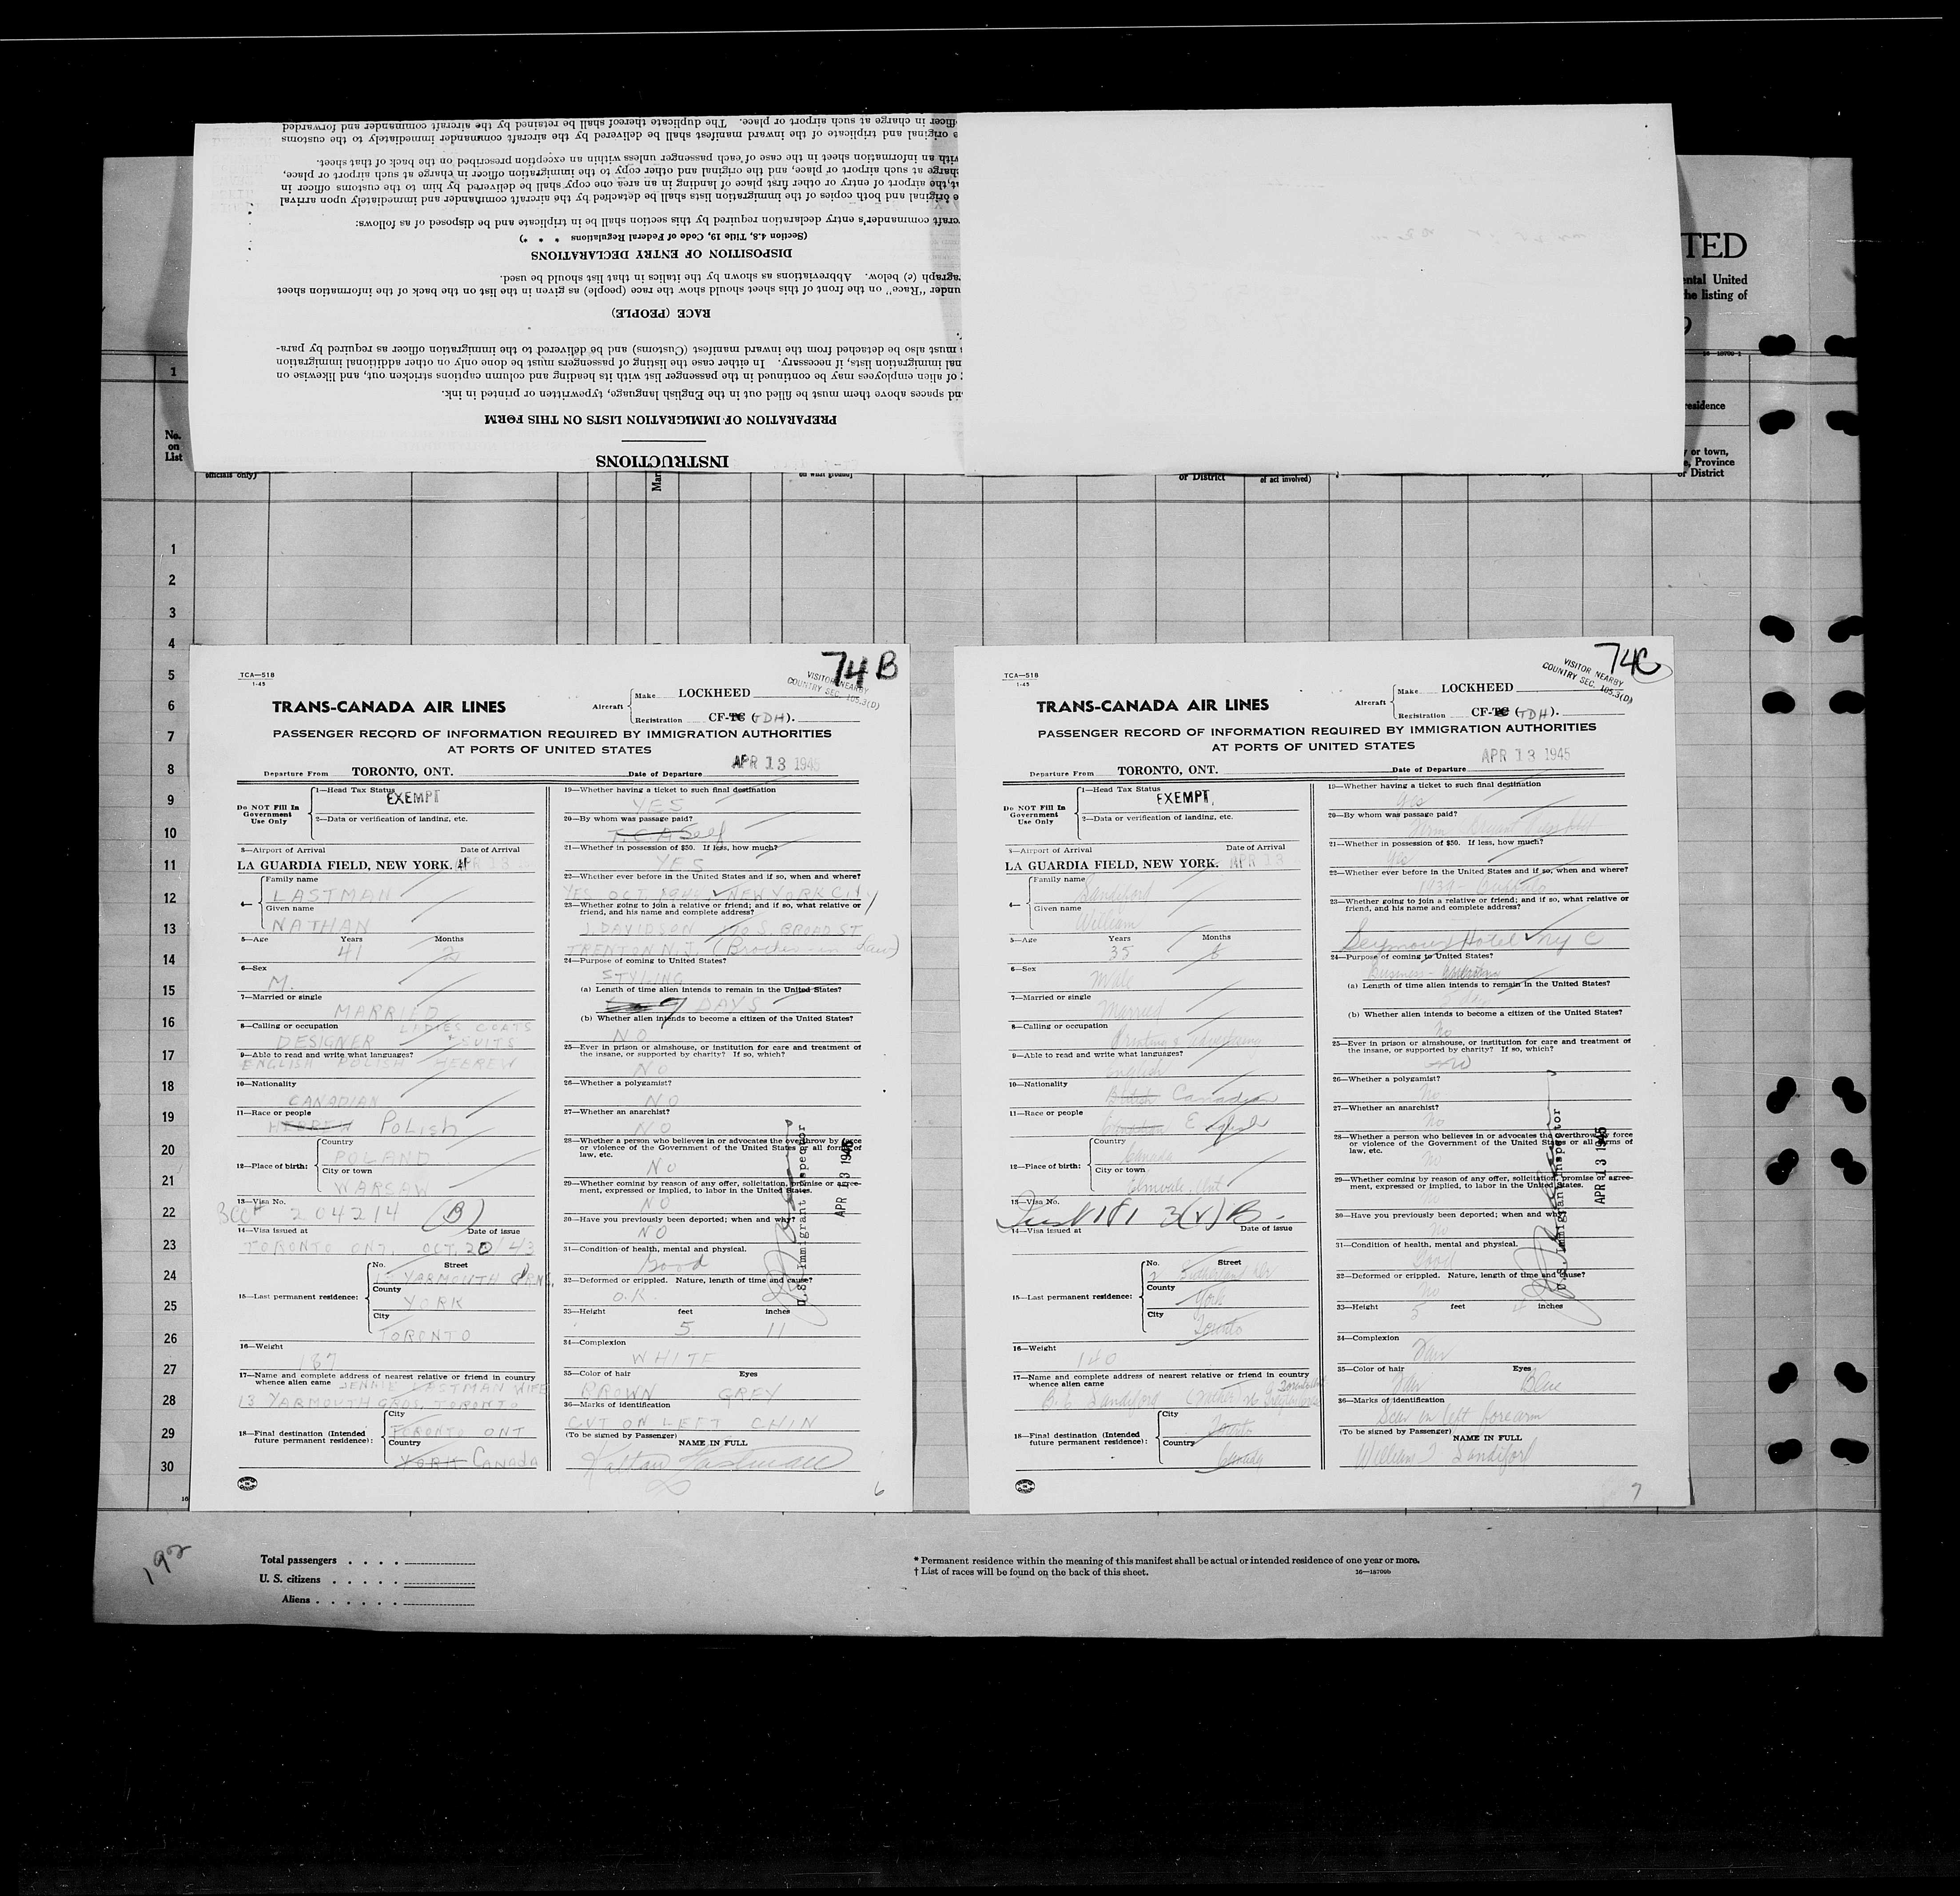 INSTRUCTIONS
PREPARATION OF IMMIGRATION LISTS ON THIS FORM
nd spaces above them must be filled out in the English language, typewritten or printed in ink.
of alien employees may be continued in the passenger list with its heading and column captions stricken out, and likewise on
nal immigration lists, if necessary. In either case the listing of passengers must be done only on other additional immigration
must also be detached from the inward manifest (Customs) and be delivered to the immigration officer as required by para-
RACE (PEOPLE)
under "Race" on the front of this sheet should show the race (people) as given in the list on the back of the information sheet
ragraph (c) below. Abbreviations as shown by the italics in that list should be used.
DISPOSITION OF ENTRY DECLARATIONS
(Section 4.8, Title 19, Code of Federal Regulations * * *)
craft commander's entry declaration required by this section shall be in triplicate and be disposed of as follows:
e original and both copies of the immigration lists shall be detached by the aircraft commander and immediately upon arrival
at the airport of entry or other first place of landing in an area one copy shall be delivered by him to the customs officer in
charge at such airport or place, and the original and other copy to the immigration officer in charge at such airport or place,
with an information sheet in the case of each passenger unless within an exception prescribed on the back of that sheet.
e original and triplicate of the inward manifest shall be delivered by the aircraft commander immediately to the customs
officer in charge at such airport or place. The duplicate thereof shall be retained by the aircraft commander and forwarded
TED
ental United
he listing of
1
No.
on
List
officials only)
Mar
or District
of act involved)
residence
y or town,
e, Province
or District
1
2
3
4
5
6
7
8
9
10
11
12
13
14
15
16
17
18
19
20
21
22
23
24
25
26
27
28
29
30
74B
TCA—518
1-45
VISITOR NEARBY
COUNTRY SEC. 105.3(D)
TRANS-CANADA AIR LINES
Aircraft
Make LOCKHEED
Registration CF-TC (TDH).
PASSENGER RECORD OF INFORMATION REQUIRED BY IMMIGRATION AUTHORITIES
AT PORTS OF UNITED STATES
Departure From TORONTO, ONT.
Date of Departure APR 13 1945
Do NOT Fill In Government Use Only
1—Head Tax Status EXEMPT
2—Data or verification of landing, etc.
3—Airport of Arrival Date of Arrival
LA GUARDIA FIELD, NEW YORK. APR 13
4— Family name LASTMAN
Given name NATHAN
5—Age Years 41 Months 2
6—Sex M.
7—Married or single MARRIED
8—Calling or occupation DESIGNER LADIES COATS + SUITS
9—Able to read and write what languages? ENGLISH POLISH HEBREW
10—Nationality CANADIAN
11—Race or people HEBREW POLISH
12—Place of birth: Country POLAND
City or town WARSAW
13—Visa No. BCC# 204214 (B)
14—Visa issued at Date of issue
TORONTO ONT. OCT. 20/43
15—Last permanent residence: No. Street 13 YARMOUTH GRDNS.
County YORK
City TORONTO
16—Weight 187
17—Name and complete address of nearest relative or friend in country
whence alien came JENNIE LASTMAN WIFE
13 YARMOUTH GRDS. TORONTO
18—Final destination (Intended future permanent residence): City TORONTO ONT
Country YORK CANADA
19—Whether having a ticket to such final destination
YES
20—By whom was passage paid?
T.C.A Self
21—Whether in possession of $50. If less, how much?
YES
22—Whether ever before in the United States and if so, when and where?
YES OCT 1944 NEW YORK CITY
23—Whether going to join a relative or friend; and if so, what relative or
friend, and his name and complete address?
J. DAVIDSON 170 S. BROAD ST
TRENTON N.J. (Brother-in Law)
24—Purpose of coming to United States?
STYLING
(a) Length of time alien intends to remain in the United States?
DAYS
(b) Whether alien intends to become a citizen of the United States?
NO
25—Ever in prison or almshouse, or institution for care and treatment of
the insane, or supported by charity? If so, which?
NO
26—Whether a polygamist?
NO
27—Whether an anarchist?
NO
28—Whether a person who believes in or advocates the overthrow by force
or violence of the Government of the United States or all forms of
law, etc.
NO
29—Whether coming by reason of any offer, solicitation, promise or agree-
ment, expressed or implied, to labor in the United States.
NO
30—Have you previously been deported; when and why?
NO
31—Condition of health, mental and physical.
Good
32—Deformed or crippled. Nature, length of time and cause?
O.K.
33—Height feet inches
5 11
34—Complexion
WHITE
35—Color of hair Eyes
BROWN GREY
36—Marks of identification
CUT ON LEFT CHIN
(To be signed by Passenger) NAME IN FULL
Lastman
U.S. Immigrant Inspector
APR 13 1945
6
74C
TCA—518
1-45
VISITOR NEARBY
COUNTRY SEC. 105.3(D)
TRANS-CANADA AIR LINES
Aircraft
Make LOCKHEED
Registration CF-TC (TDH).
PASSENGER RECORD OF INFORMATION REQUIRED BY IMMIGRATION AUTHORITIES
AT PORTS OF UNITED STATES
Departure From TORONTO, ONT.
Date of Departure APR 13 1945
Do NOT Fill In Government Use Only
1—Head Tax Status EXEMPT.
2—Data or verification of landing, etc.
3—Airport of Arrival Date of Arrival
LA GUARDIA FIELD, NEW YORK. APR 13
4— Family name Sandiford
Given name William
5—Age Years 35 Months 6
6—Sex Male
7—Married or single Married
8—Calling or occupation Printing & Advertising
9—Able to read and write what languages? English
10—Nationality British Canadian
11—Race or people Canadian English
12—Place of birth: Country Canada
City or town Elmvale, Ont
13—Visa No.
14—Visa issued at Date of issue
15—Last permanent residence: No. Street 2 Sutherland Dr
County York
City Toronto
16—Weight 140
17—Name and complete address of nearest relative or friend in country
whence alien came
Sandiford
18—Final destination (Intended future permanent residence): City Toronto
Country Canada
19—Whether having a ticket to such final destination
Yes
20—By whom was passage paid?
Firm
21—Whether in possession of $50. If less, how much?
Yes
22—Whether ever before in the United States and if so, when and where?
1939 - Buffalo
23—Whether going to join a relative or friend; and if so, what relative or
friend, and his name and complete address?
Seymour Hotel NYC
24—Purpose of coming to United States?
Business -
(a) Length of time alien intends to remain in the United States?
(b) Whether alien intends to become a citizen of the United States?
No
25—Ever in prison or almshouse, or institution for care and treatment of
the insane, or supported by charity? If so, which?
No
26—Whether a polygamist?
No
27—Whether an anarchist?
No
28—Whether a person who believes in or advocates the overthrow by force
or violence of the Government of the United States or all forms of
law, etc.
No
29—Whether coming by reason of any offer, solicitation, promise or agree-
ment, expressed or implied, to labor in the United States.
No
30—Have you previously been deported; when and why?
No
31—Condition of health, mental and physical.
Good
32—Deformed or crippled. Nature, length of time and cause?
No
33—Height feet inches
5 4
34—Complexion
Fair
35—Color of hair Eyes
Fair Blue
36—Marks of identification
Scar on left forearm
(To be signed by Passenger) NAME IN FULL
William J Sandiford
U.S. Immigrant Inspector
APR 13 1945
7
192
Total passengers . . . .
U. S. citizens . . . . .
Aliens . . . . . .
* Permanent residence within the meaning of this manifest shall be actual or intended residence of one year or more.
† List of races will be found on the back of this sheet.
16—18700b